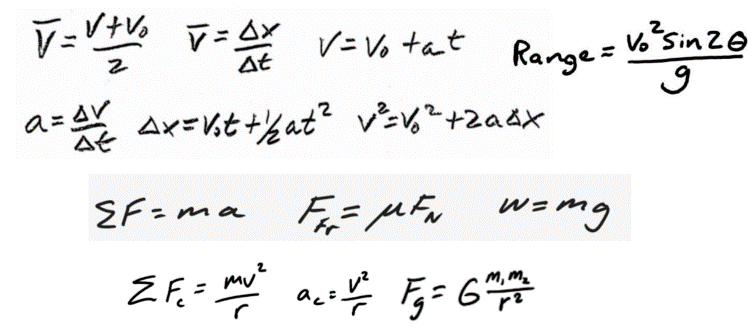 V̅ = V+V₀/2   V̅ = Δx/Δt   V = V₀ + at   Range = V₀² sin 2θ/g
a = ΔV/Δt   Δx = V₀t + ½at²   V² = V₀² + 2aΔx
ΣF = ma   F_Fr = μF_N   w = mg
ΣF_c = mv²/r   a_c = v²/r   F_g = G m₁m₂/r²